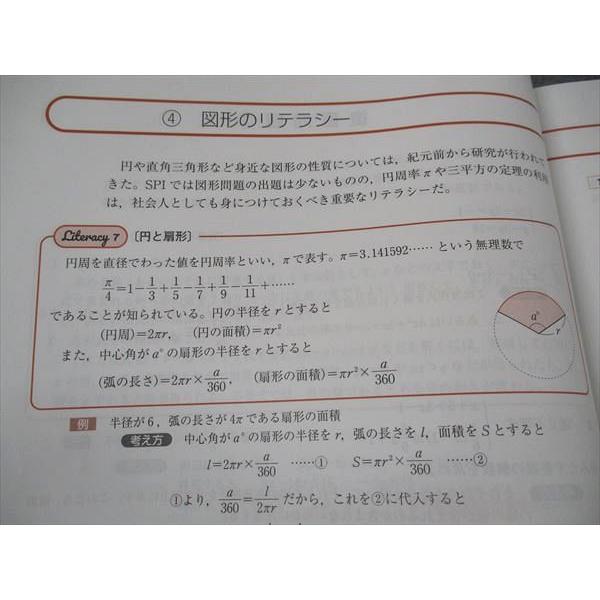 ④ 図形のリテラシー
円や直角三角形など身近な図形の性質については，紀元前から研究が行われて
きた。SPIでは図形問題の出題は少ないものの，円周率πや三平方の定理の利用
は，社会人としても身につけておくべき重要なリテラシーだ。
Literacy 7 〔円と扇形〕
円周を直径でわった値を円周率といい，πで表す。π＝3.141592…… という無理数で
π/4＝1－1/3＋1/5－1/7＋1/9－1/11＋……
であることが知られている。円の半径をrとすると
(円周)＝2πr， (円の面積)＝πr²
また，中心角がa°の扇形の半径をrとすると
(弧の長さ)＝2πr×a/360， (扇形の面積)＝πr²×a/360
a°
r
例 半径が6，弧の長さが4πである扇形の面積
考え方 中心角がa°の扇形の半径をr，弧の長さをl，面積をSとすると
l＝2πr×a/360 ……① S＝πr²×a/360 ……②
①より，a/360＝l/2πr だから，これを②に代入すると